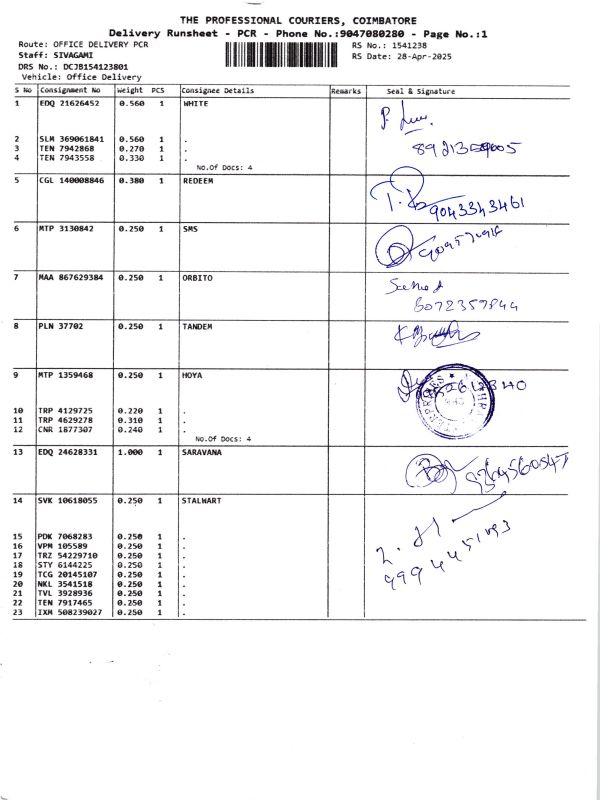 THE PROFESSIONAL COURIERS, COIMBATORE
Delivery Runsheet - PCR - Phone No.:9047080280 - Page No.:1
Route: OFFICE DELIVERY PCR
Staff: SIVAGAMI
DRS No.: DCJB154123801
Vehicle: Office Delivery
RS No.: 1541238
RS Date: 28-Apr-2025
S No Consignment No Weight PCS Consignee Details Remarks Seal & Signature
1 EDQ 21626452 0.560 1 WHITE
2 SLM 369061841 0.560 1 .
3 TEN 7942868 0.270 1 .
4 TEN 7943558 0.330 1 .
No.Of Docs: 4
5 CGL 140008846 0.380 1 REDEEM
9043343461
6 MTP 3130842 0.250 1 SMS
7 MAA 867629384 0.250 1 ORBITO
8072357844
8 PLN 37702 0.250 1 TANDEM
9 MTP 1359468 0.250 1 HOYA
10 TRP 4129725 0.220 1 .
11 TRP 4629278 0.310 1 .
12 CNR 1877307 0.240 1 .
No.Of Docs: 4
13 EDQ 24628331 1.000 1 SARAVANA
14 SVK 10618055 0.250 1 STALWART
15 PDK 7068283 0.250 1 .
16 VPM 105589 0.250 1 .
17 TRZ 54229710 0.250 1 .
18 STY 6144225 0.250 1 .
19 TCG 20145107 0.250 1 .
20 NKL 3541518 0.250 1 .
21 TVL 3928936 0.250 1 .
22 TEN 7917465 0.250 1 .
23 IXM 508239027 0.250 1 .